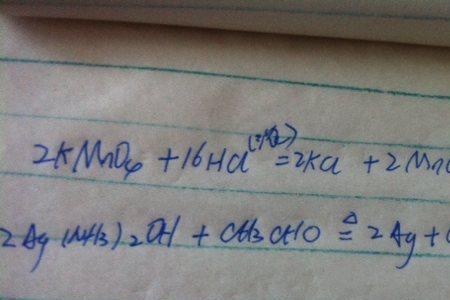 2KMnO4 + 16HCl (浓) = 2KCl + 2Mn
2Ag(NH3)2OH + CH3CHO ≜ 2Ag +